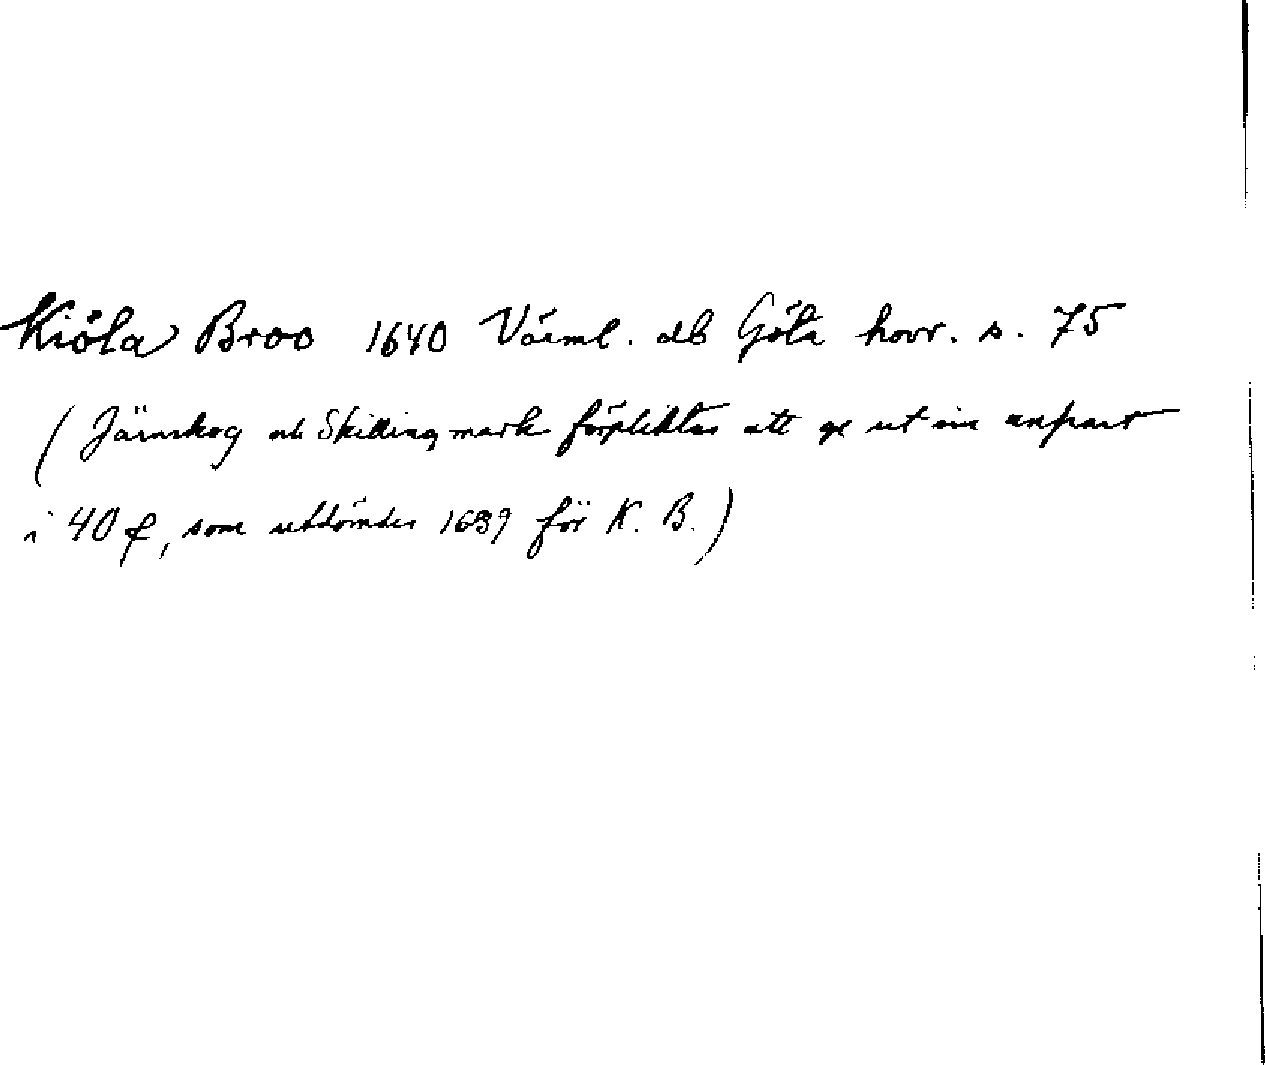 Kiöla Broo 1640 Värml. db Göta hovr. s. 75
(Järnskog och Skillingmark förpliktas att ge ut sin anpart
i 40 , som utdömdes 1639 för K. B.)